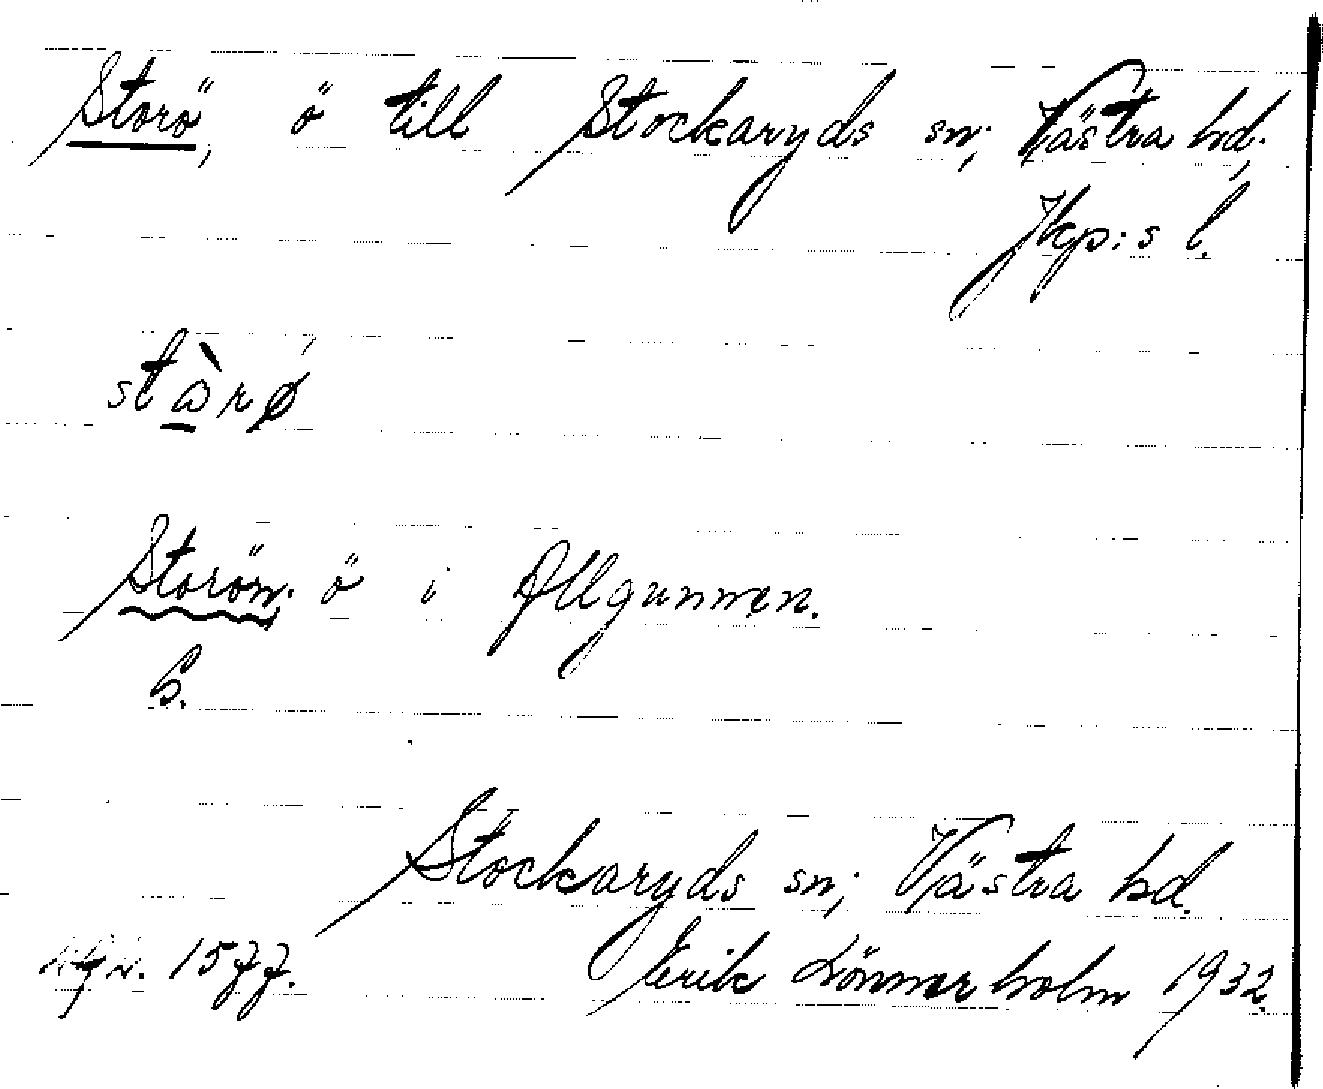 Storö, ö till Stockaryds sn; Västra hd;
Jkp:s l.
Storön. ö i Allgunnen.
S.
Stockaryds sn; Västra hd.
1577. Erik Lönnerholm 1932.